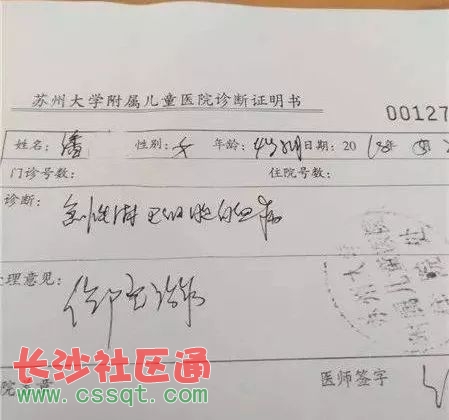 苏州大学附属儿童医院诊断证明书
00127
姓名:潘 性别:女 年龄:4岁 日期:2018年
门诊号数: 住院号数:
诊断: 急性淋巴细胞白血病
处理意见:
住院治疗
医师签字
长沙社区通
www.cssqt.com